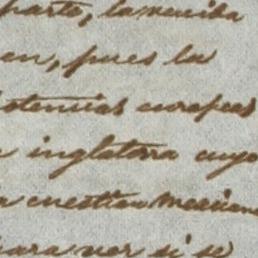 parte, la reciba
en, pues la
otencias europeas
inglaterra cuyo
a cuestion Mexicana
para ver si se